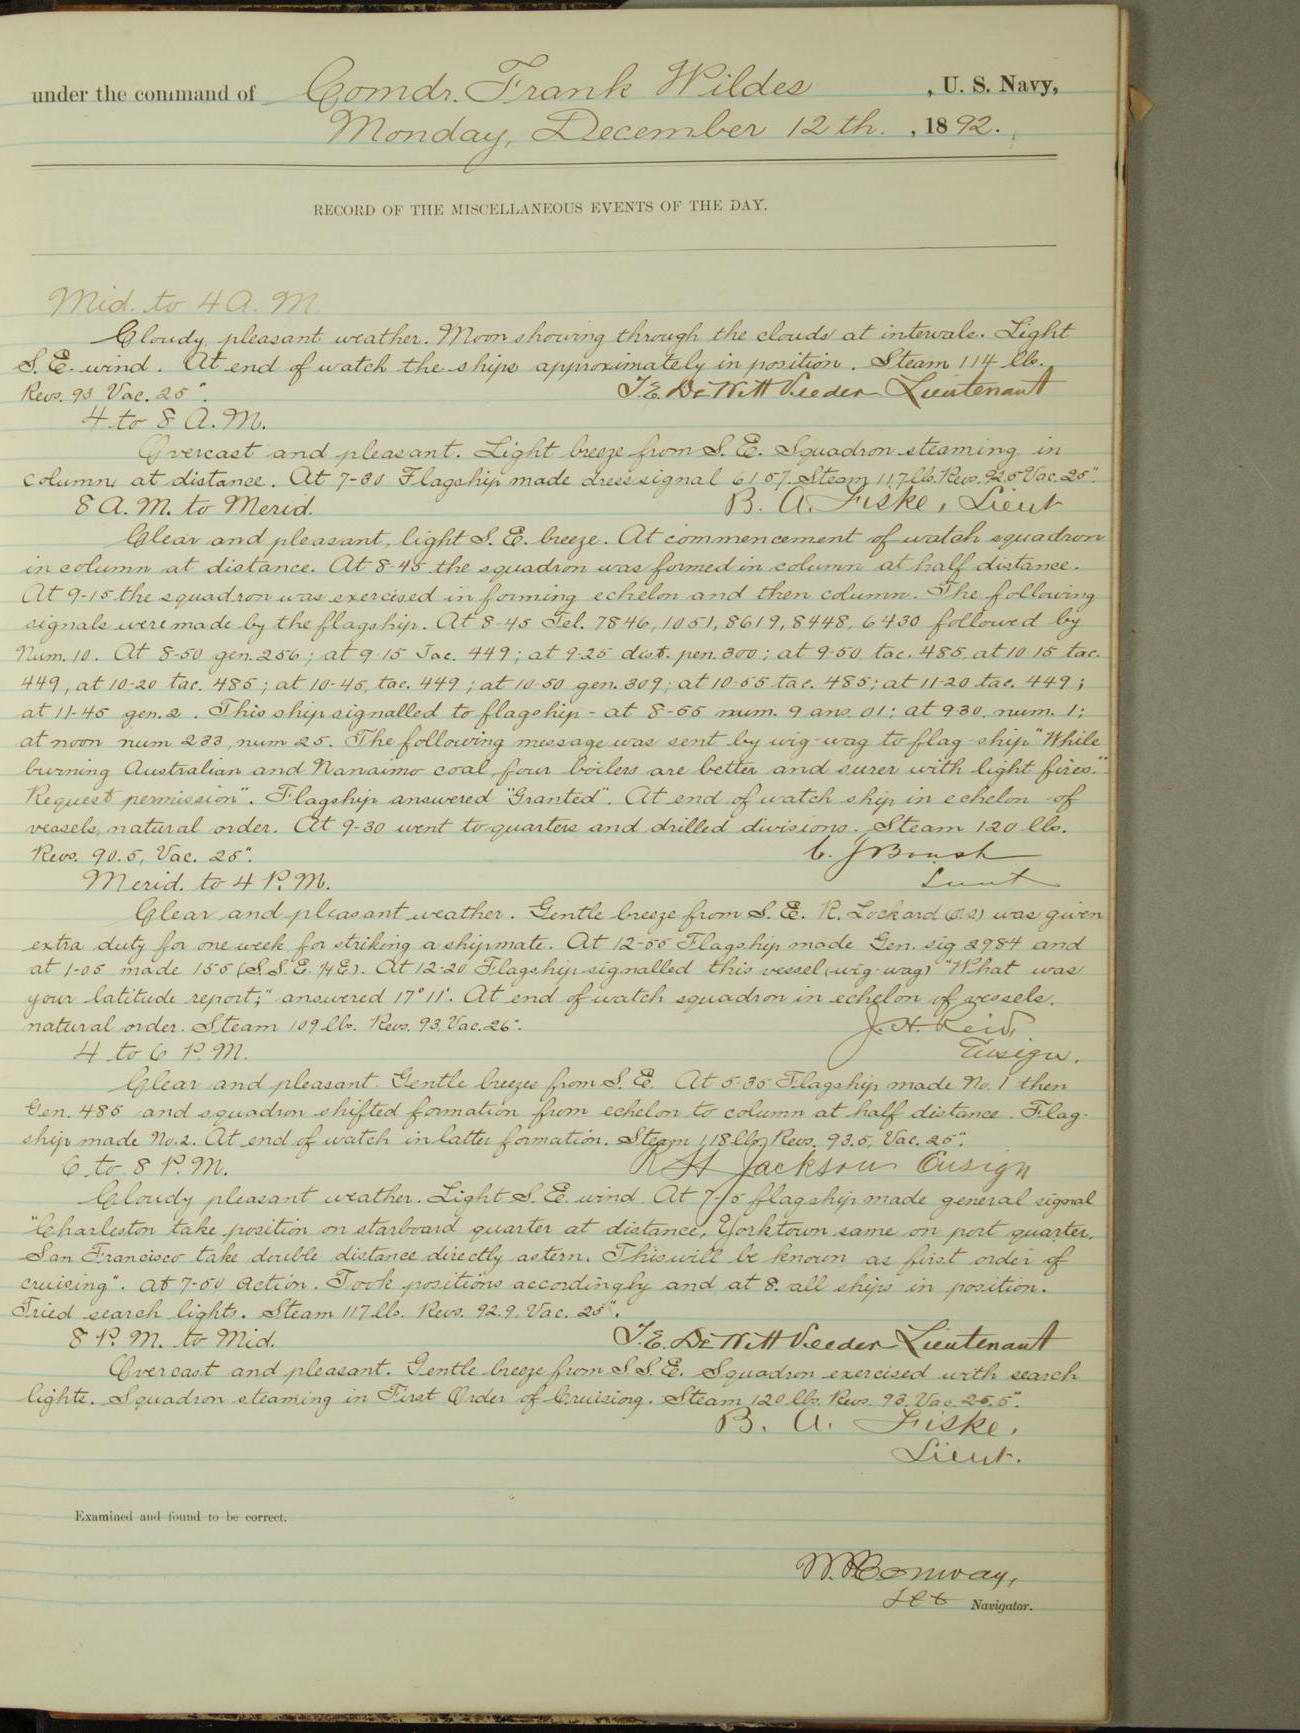 under the command of Comdr. Frank Wildes, U. S. Navy,
Monday, December 12th., 1892.
RECORD OF THE MISCELLANEOUS EVENTS OF THE DAY.
Mid. to 4 A. M.
Cloudy, pleasant weather. Moon showing through the clouds at intervals. Light
S. E. wind. At end of watch the ships approximately in position. Steam 114 lbs.
Revs. 93 Vac. 25". T. E. DeWitt Veeder Lieutenant
4 to 8 A. M.
Overcast and pleasant. Light breeze from S. E. Squadron steaming in
column at distance. At 7-30 Flagship made dress signal 6157. Steam 117 lbs. Revs. 92.5 Vac. 25".
8 A. M. to Merid. B. A. Fiske, Lieut
Clear and pleasant, light S. E. breeze. At commencement of watch squadron
in column at distance. At 8-45 the squadron was formed in column at half distance.
At 9-15 the squadron was exercised in forming echelon and then column. The following
signals were made by the flagship. At 8-45 Tel. 7846, 1051, 8619, 8448, 6430 followed by
Num. 10. At 8-50 gen. 256; at 9-15 Tac. 449; at 9-25 dist. pen. 300; at 9-50 tac. 485, at 10-15 tac.
449, at 10-20 tac. 485; at 10-45, tac. 449; at 10-50 gen. 309; at 10-55 tac. 485; at 11-20 tac. 449;
at 11-45 gen. 2. This ship signalled to flagship - at 8-55 num. 9 ans. 01; at 930. num. 1;
at noon num 233, num 25. The following message was sent by wig-wag to flag-ship "While
burning Australian and Nanaimo coal, four boilers are better and surer with light fires."
Request permission". Flagship answered "Granted". At end of watch ship in echelon of
vessels, natural order. At 9-30 went to quarters and drilled divisions. Steam 120 lbs.
Revs. 90.5, Vac. 25". C. J Boush
Merid. to 4 P. M. Lieut
Clear and pleasant weather. Gentle breeze from S. E. R. Lockard (O.S) was given
extra duty for one week, for striking a shipmate. At 12-55 Flagship made Gen. sig 2984 and
at 1-05 made 155 (S.S.E. ¼ E.). At 12-20 Flagship signalled this vessel (wig-wag) "What was
your latitude report;" answered 17° 11'. At end of watch squadron in echelon of vessels.
natural order. Steam 109 lbs. Revs. 93, Vac. 26". J. H. Reid,
4 to 6 P. M. Ensign.
Clear and pleasant. Gentle breezes from S. E. At 5-35 Flagship made No. 1 then
Gen. 485 and squadron shifted formation from echelon to column at half distance. Flag-
ship made No. 2. At end of watch in latter formation. Steam 118 lbs. Revs. 93.5, Vac. 25".
6 to 8 P. M. R H Jackson Ensign
Cloudy pleasant weather. Light S. E. wind. At 7-15 flagship made general signal
"Charleston take position on starboard quarter at distance, Yorktown same on port quarter.
San Francisco take double distance directly astern. This will be known as first order of
cruising". At 7-50 Action. Took positions accordingly and at 8. all ships in position.
Tried search lights. Steam 117 lbs. Revs. 92.9. Vac. 25".
8 P. M. to Mid. T. E. DeWitt Veeder Lieutenant
Overcast and pleasant. Gentle breeze from S S. E. Squadron exercised with search
lights. Squadron steaming in First Order of Cruising. Steam 120 lbs. Revs. 93, Vac. 25.5".
B. A. Fiske,
Lieut.
Examined and found to be correct.
Conway,
Navigator.